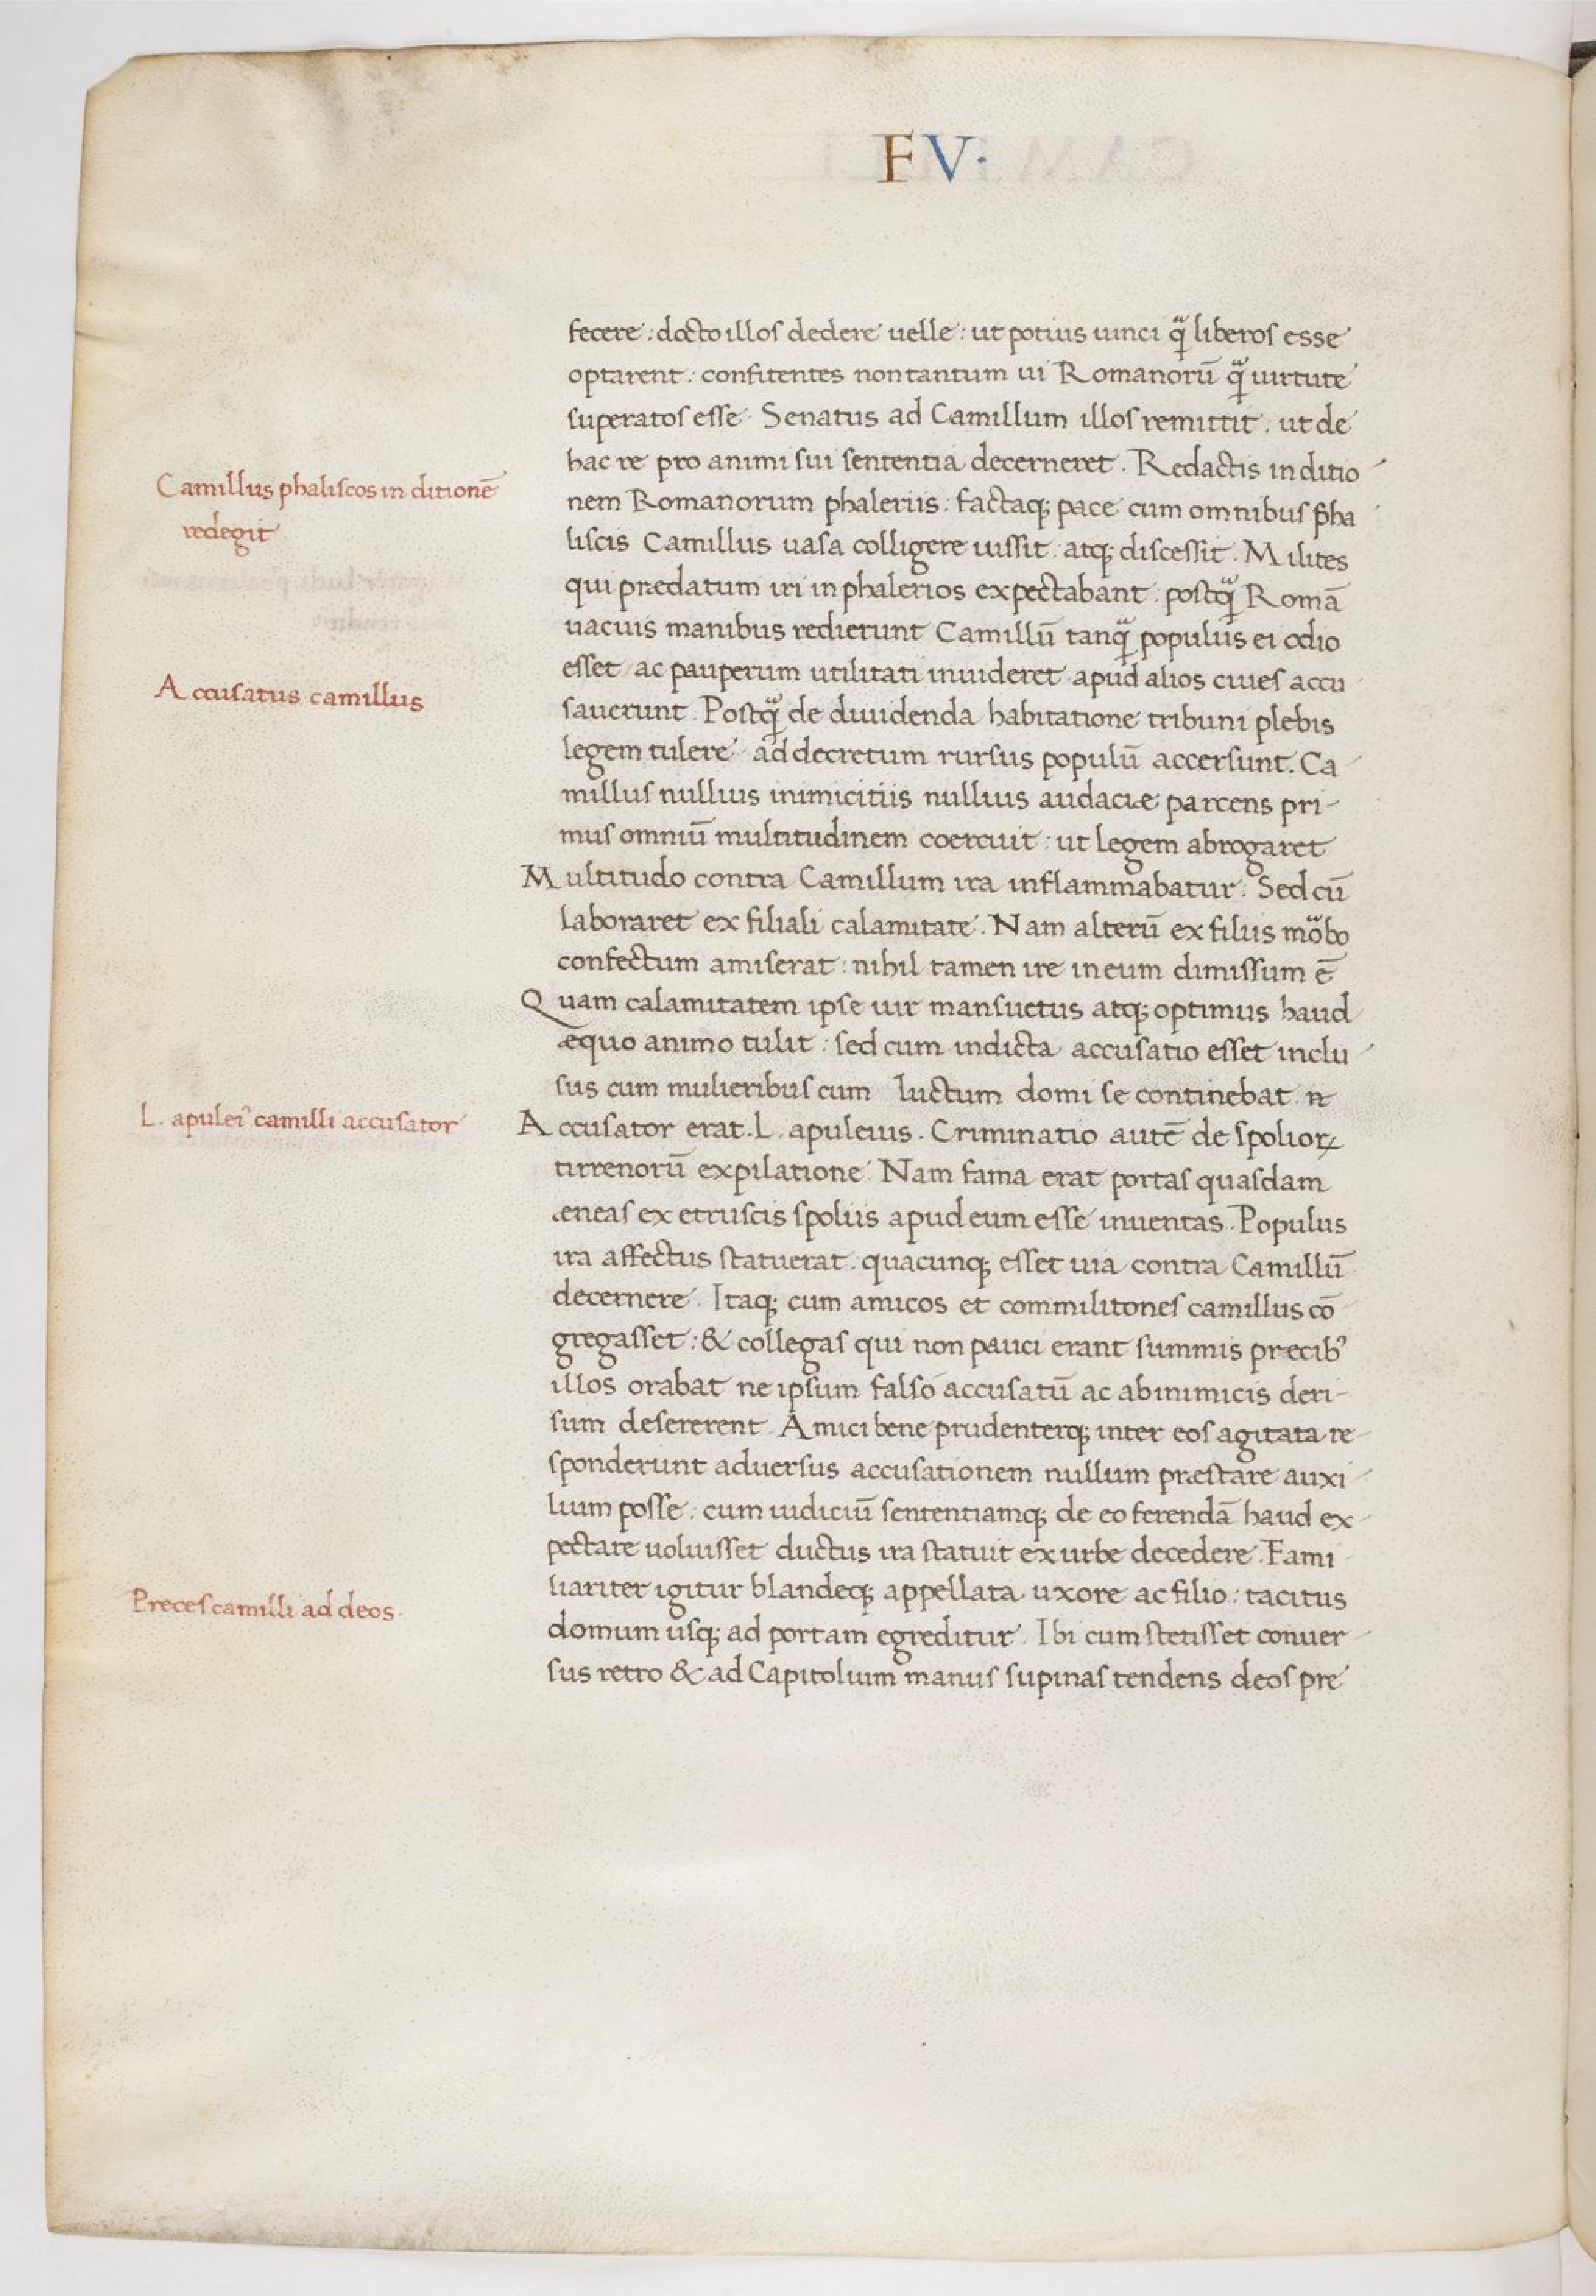 FV·
fecere : docto illos dedere uelle : ut potius uinci qᷓ liberos esse
optarent : confitentes non tantum ui Romanorū qᷓ uirtute
superatos esse. Senatus ad Camillum illos remittit. ut de
hac re pro animi sui sententia decerneret. Redactis in ditio
Camillus phaliscos in ditionē
redegit
nem Romanorum phaleriis : factaq; pace cum omnibus pha
liscis Camillus uasa colligere iussit. atq; discessit. Milites
qui prædatum iri in phalerios expectabant. postqᷓ Romā
uacuis manibus redierunt Camillū tanqᷓ populus ei odio
esset ac pauperum utilitati inuideret apud alios ciues accu
Accusatus camillus
sauerunt. Postqᷓ de diuidenda habitatione tribuni plebis
legem tulere ad decretum rursus populū accersunt. Ca
millus nullius inimicitiis nullius audaciæ parcens pri-
mus omniū multitudinem coercuit : ut legem abrogaret
Multitudo contra Camillum ira inflammabatur. Sed cū
laboraret ex filiali calamitate. Nam alterū ex filiis moᷓbo
confectum amiserat : nihil tamen ire in eum dimissum ē
Quam calamitatem ipse uir mansuetus atq; optimus haud
æquo animo tulit : sed cum indicta accusatio esset inclu
sus cum mulieribus cum luctum domi se continebat.
L. apulei᾽ camilli accusator
Accusator erat. L. apuleius. Criminatio autē de spolioꝝ
tirrenorū expilatione. Nam fama erat portas quasdam
æneas ex etruscis spoliis apud eum esse inuentas. Populus
ira affectus statuerat. quacunq; esset uia contra Camillū
decernere. Itaq; cum amicos et commilitones camillus cō
gregasset : & collegas qui non pauci erant summis precib᾽
illos orabat ne ipsum falso accusatū ac ab inimicis deri-
sum desererent. Amici bene prudenterq; inter eos agitata re
sponderunt aduersus accusationem nullum præstare auxi
lium posse : cum iudiciū sententiamq; de eo ferendā haud ex
pectare uoluisset ductus ira statuit ex urbe decedere. Fami
liariter igitur blandeq; appellata uxore ac filio : tacitus
Preces camilli ad deos
domum usq; ad portam egreditur. Ibi cum stetisset conuer
sus retro & ad Capitolium manus supinas tendens deos pre